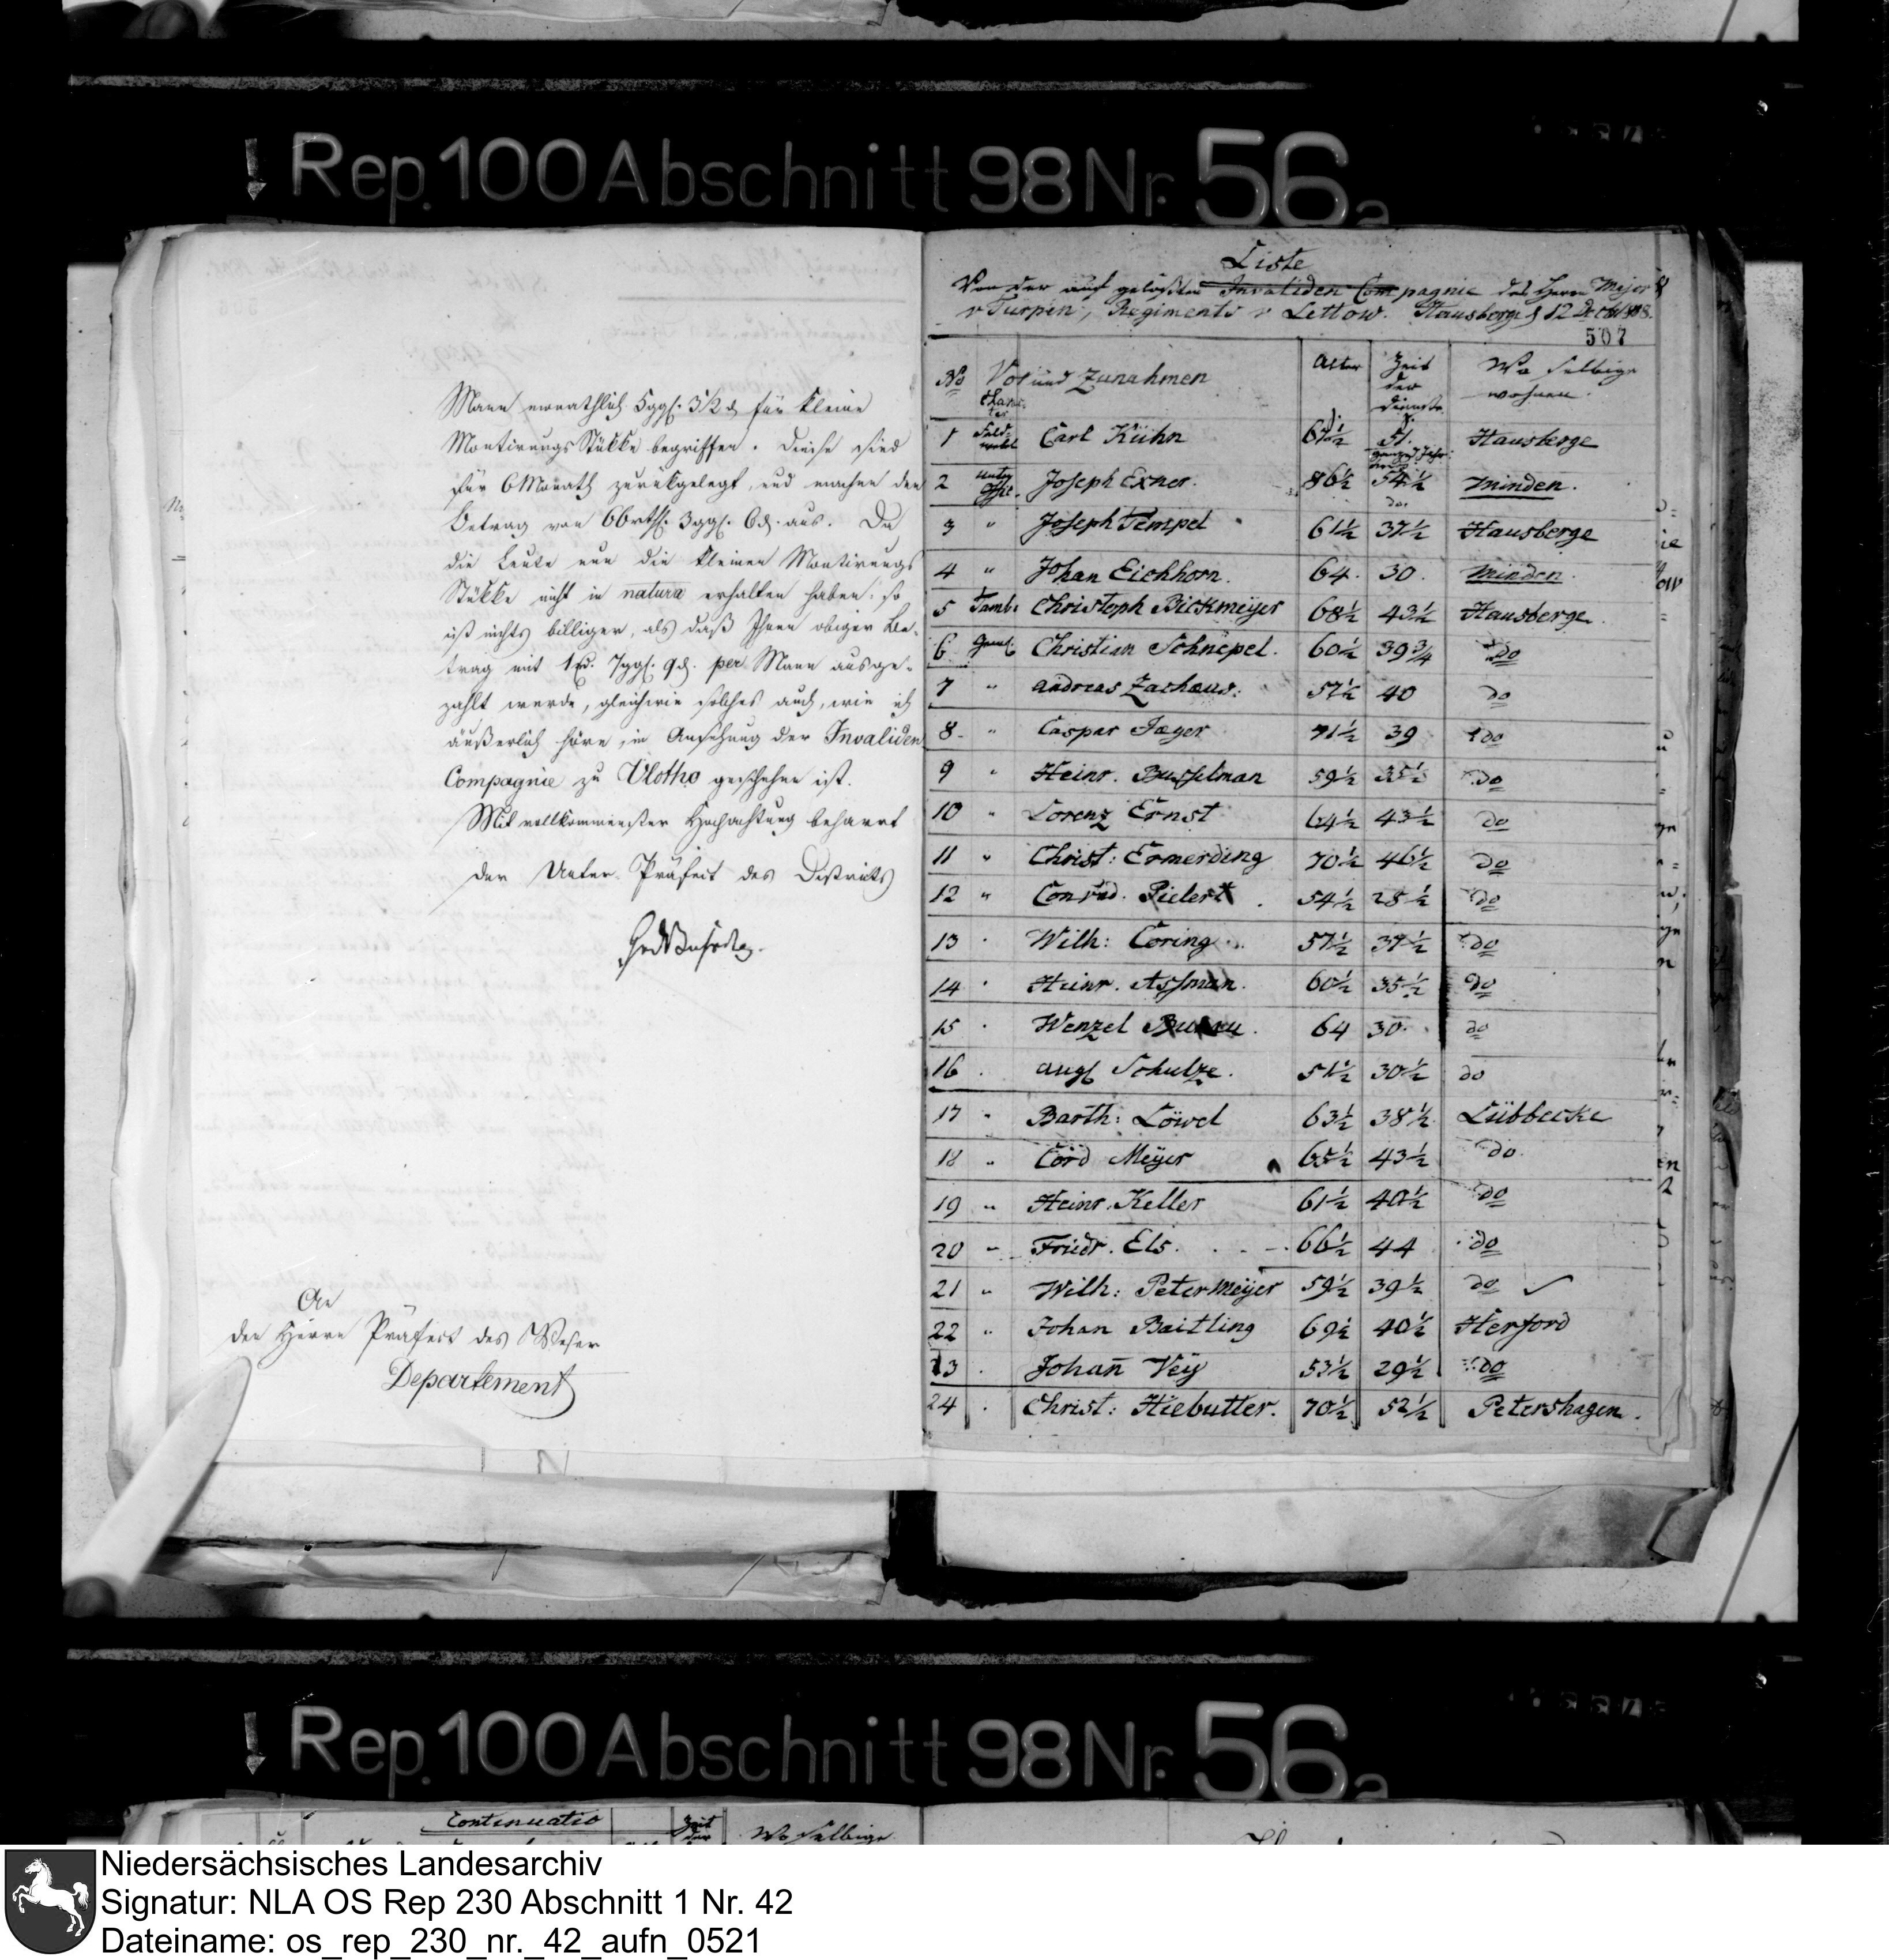 Rep. 100 Abschnitt 98 Nr. 56a
Mann monathlich 5 ggl. 3½ d für kleine
Montirungs Stükke begriffen. Diese sind
für 6 Monath zurükgelegt, und machen den
Betrag von 66 rthl. 3 ggl. 6 d. aus. Da
die Leute nun die kleinen Montirungs
Stükke nicht in natura erhalten haben, so
ist nichts billiger, als daß Ihnen obiger Be-
trag mit 7 ggl. 9 d. per Mann ausge-
zahlt werde, gleichwie solches auch, wie ich
äußerlich höre, in Ansehung der Invaliden
Compagnie zu Vlotho geschehen ist.
Mit vollkommenster Hochachtung beharrt
der Unter Präfect des Districts
An
den Herrn Präfect des Weser
Departement
Liste
Von der auf gelößten Invaliden Compagnie des Herrn Major
v Turpin, Regiments v Lettow. Hausberge d 12 Dec 1808.
507
No Vor und Zunahmen Alter Zeit der Dienste Wo selbige wohnen.
Charac ter
1 Feld webel Carl Kühn 67½ 51. Hausberge
2 Unter Offic. Joseph Exner. 86½ 54½ Minden.
do.
3 " Joseph Tempel 61½ 37½ Hausberge
4 " Johan Eichhorn. 64. 30. Minden.
5 Tamb. Christoph Bickmeÿer 68½ 43½ Hausberge.
6 Gemei. Christian Schnepel. 60½ 39¾ do
7 " Andreas Zachaus. 57½ 40 do
8 " Caspar Jæger 71½ 39 do
9 " Heinr. Busselman 59½ 35½ do
10 " Lorenz Ernst 64½ 43½ do
11 " Christ: Ermerding 70½ 46½ do
12 " Conrad. Pielert 54½ 28½ do
13 " Wilh: Coring 57½ 37½ do
14 " Heinr. Assman. 60½ 35½ do
15 " Wenzel 64 30. do
16 . Augs Schulze. 51½ 30½ do
17 " Barth: Löwel 63½ 38½ Lübbecke
18 " Cord Meÿer 65½ 43½ do.
19 " Heinr. Keller 61½ 40½ do
20 " Friedr. Els. 66½ 44 do
21 " Wilh: Petermeÿer 59½ 39½ do
22 " Johan Baitling 69½ 40½ Herford
23 . Johan Veÿ 53½ 29½ do
24 . Christ: Hiebutter. 70½ 52½ Petershagen.
Rep. 100 Abschnitt 98 Nr. 56a
Continuatio
Zeit der Wo selbige
Niedersächsisches Landesarchiv
Signatur: NLA OS Rep 230 Abschnitt 1 Nr. 42
Dateiname: os_rep_230_nr._42_aufn_0521